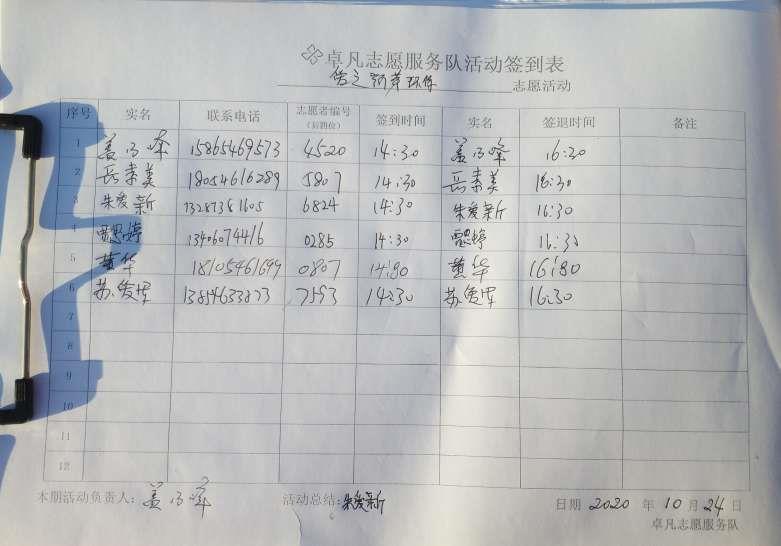 卓凡志愿服务队活动签到表
志愿活动
序号 实名 联系电话 志愿者编号 签到时间 实名 签退时间 备注
(后四位)
1 姜乃峰 15865469573 4520 14:30 姜乃峰 16:30
2 岳素美 18054616289 5807 14:30 岳素美 16:30
3 朱爱新 13287381605 6824 14:30 朱爱新 16:30
4 婷 13406074416 0285 14:30 婷 16:30
5 黄华 18105461699 0807 14:30 黄华 16:30
6 苏俊 13854633873 7593 14:30 苏俊 16:30
7
8
9
10
11
12
本期活动负责人: 姜乃峰 活动总结: 朱爱新 日期 2020 年 10 月 24 日
卓凡志愿服务队